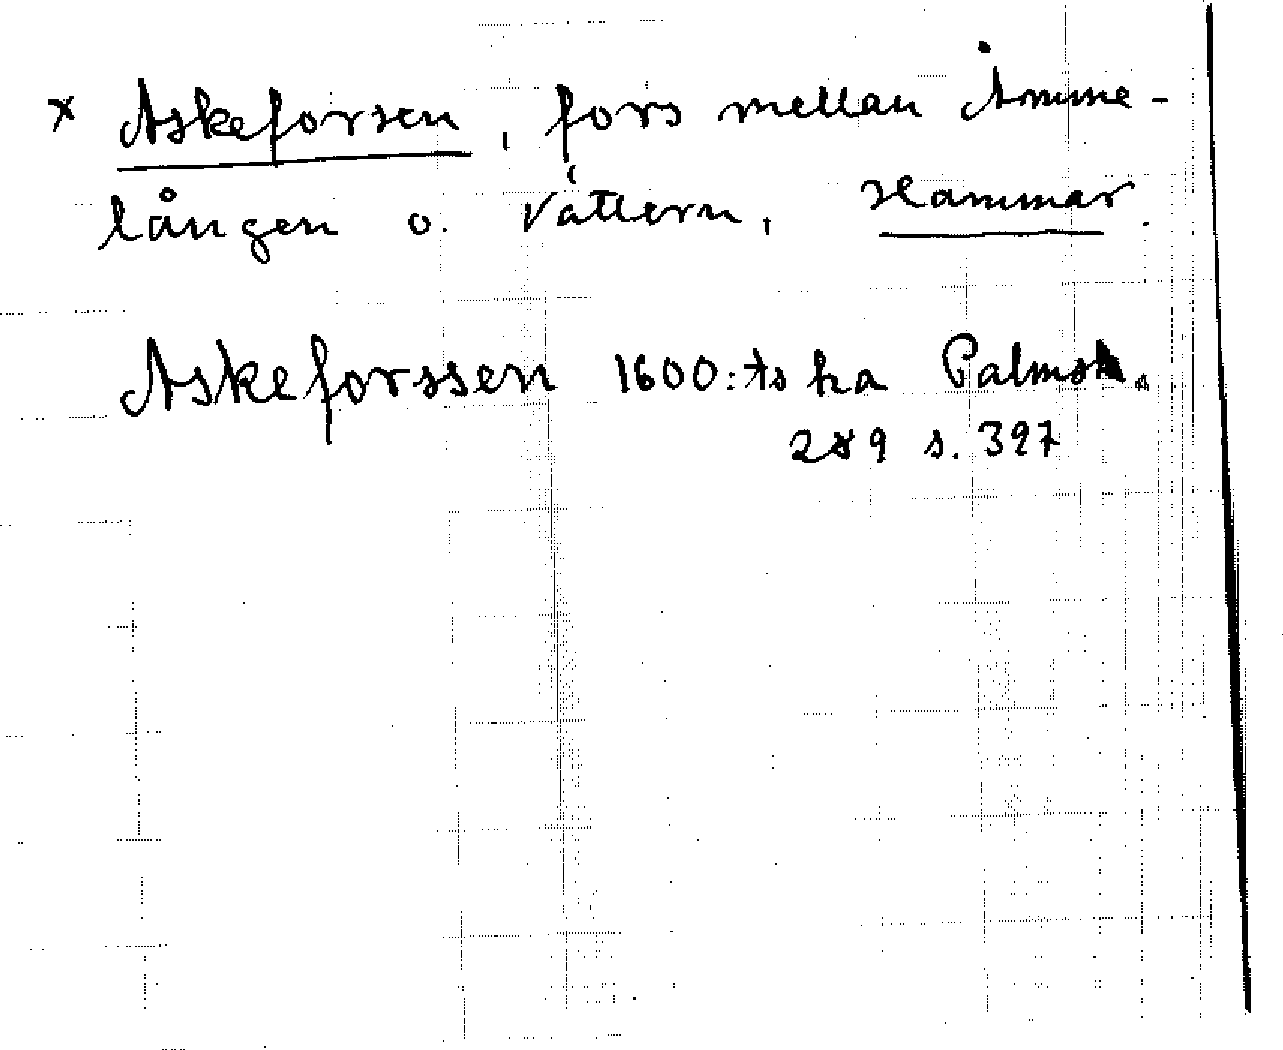 x Askeforsen, fors mellan Åmme-
lången o. Vättern, Hammar.
Askeforssen 1600:ts ha Palmsk.
289 s. 397